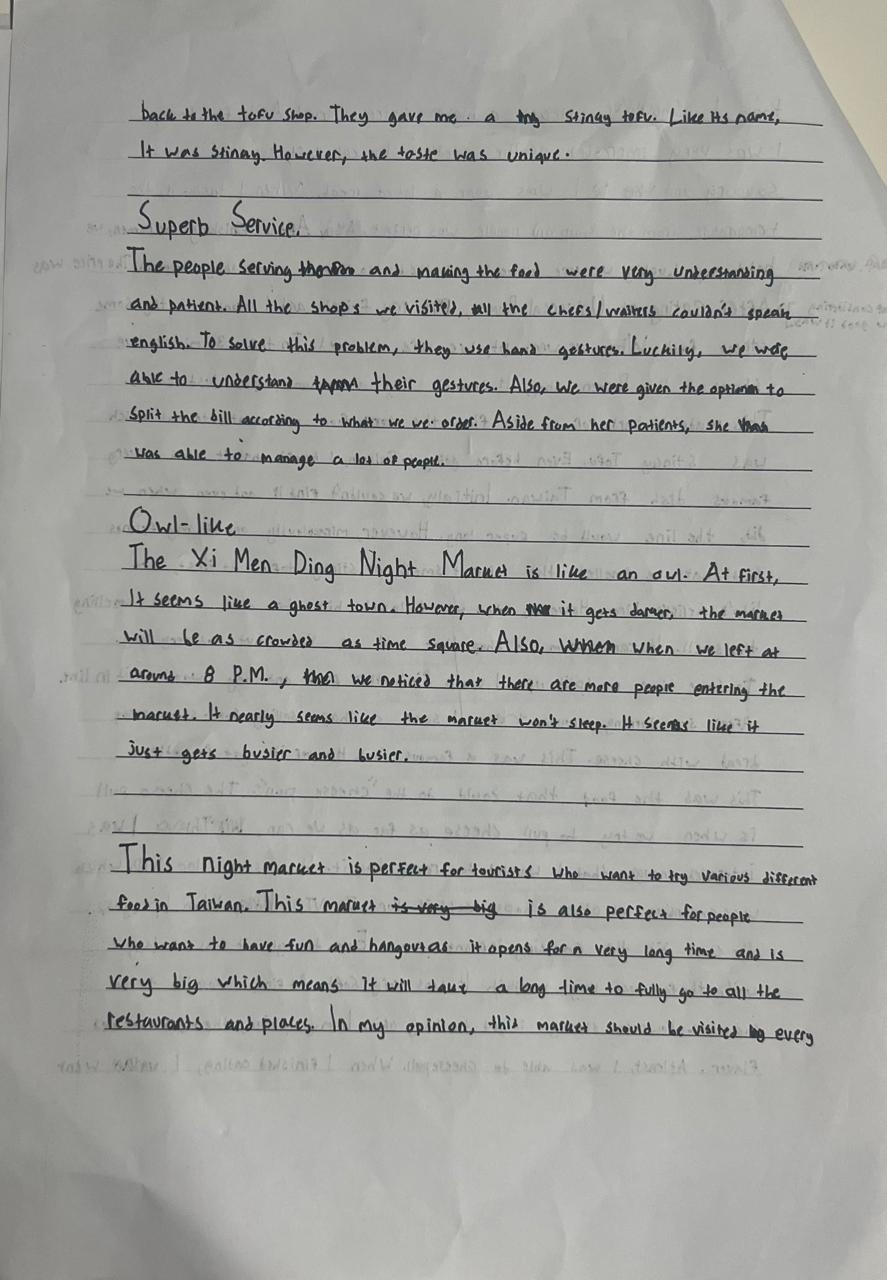 back to the tofu shop. They gave me a stinky tofu. Like its name,
It was stinky. However, the taste was unique.
Superb Service.
The people serving and making the food were very understanding
and patient. All the shops we visited, all the chefs/waiters couldn't speak
english. To solve this problem, they use hand gestures. Luckily, we were
able to understand their gestures. Also, we were given the option to
split the bill according to what we we order. Aside from her patients, she
was able to manage a lot of people.
Owl-like
The Xi Men Ding Night Market is like an owl. At first,
It seems like a ghost town. However, when it gets darker, the market
will be as crowded as time square. Also, when we left at
around 8 P.M., we noticed that there are more people entering the
market. It nearly seems like the market won't sleep. It seems like it
just gets busier and busier.
This night market is perfect for tourists who want to try various different
food in Taiwan. This market is very big is also perfect for people
who want to have fun and hangout as it opens for a very long time and is
very big which means it will take a long time to fully go to all the
restaurants and places. In my opinion, this market should be visited by every